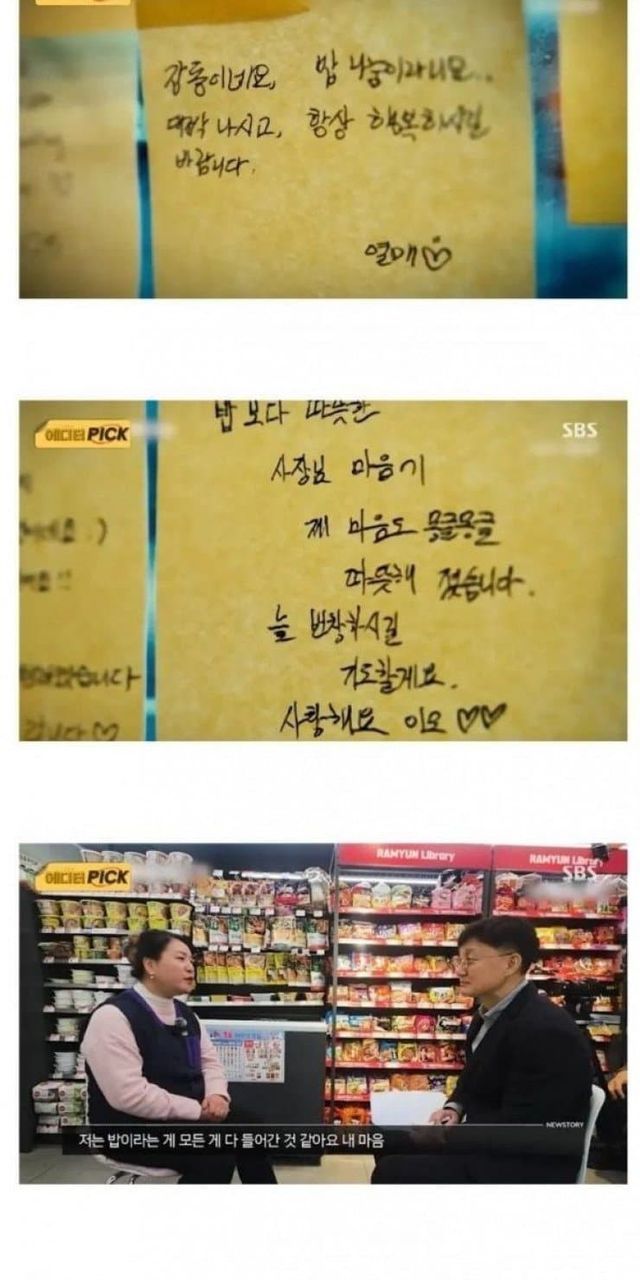 감동이네요, 밥 나눔이라니요...
대박 나시고, 항상 행복하시길
바랍니다.
열매♡
에디터 PICK
SBS
밥보다 따뜻한
사장님 마음에
제 마음도 몽글몽글
따뜻해 졌습니다.
늘 번창하시길
기도할게요.
사랑해요 이모 ♡♡
니다♡
RAMYUN Library
RAMYUN Library
에디터 PICK
SBS
NEWSTORY
저는 밥이라는 게 모든 게 다 들어간 것 같아요 내 마음